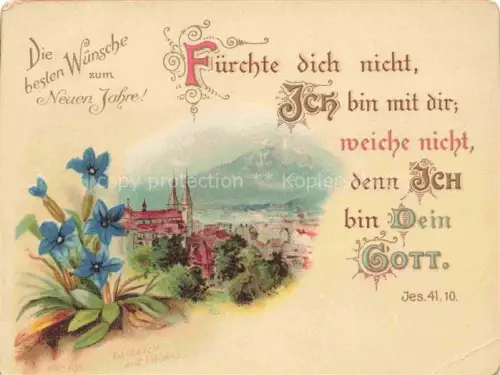 Die
besten Wünsche
zum
Neuen Jahre!
Fürchte dich nicht,
Ich bin mit dir;
weiche nicht,
denn Ich
bin Dein
Gott.
Jes. 41, 10.
copy protection
Kopierschutz